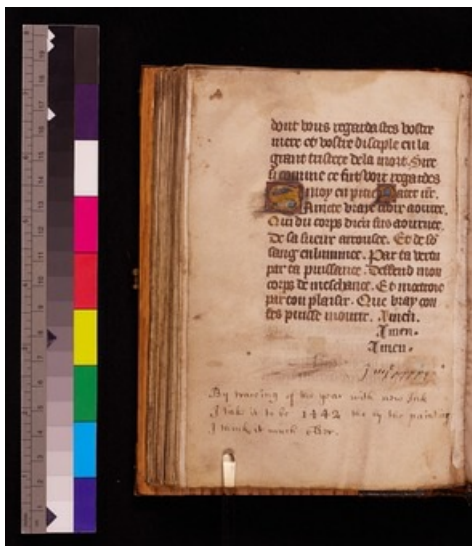 dont vous regardastes vostre
mere et vostre disciple en la
grant tristece de la mort. Sire
si comme ce fut voir regardes
moy en pitie Pater nr̄.
Sainte vraye croix aouree.
Qui du corps dieu fus aournee.
De sa sueur arrousee. Et de sō
sang enluminee. Par ta vertu
par ta puissance. Deffend mon
corps de meschance. Et
par ton plaisir. Que vray con
fes puisse mourir. Amen.
Amen.
Amen.
By traceing of the year with new Ink
I take it to be 1442 by the painting
I think it much older.